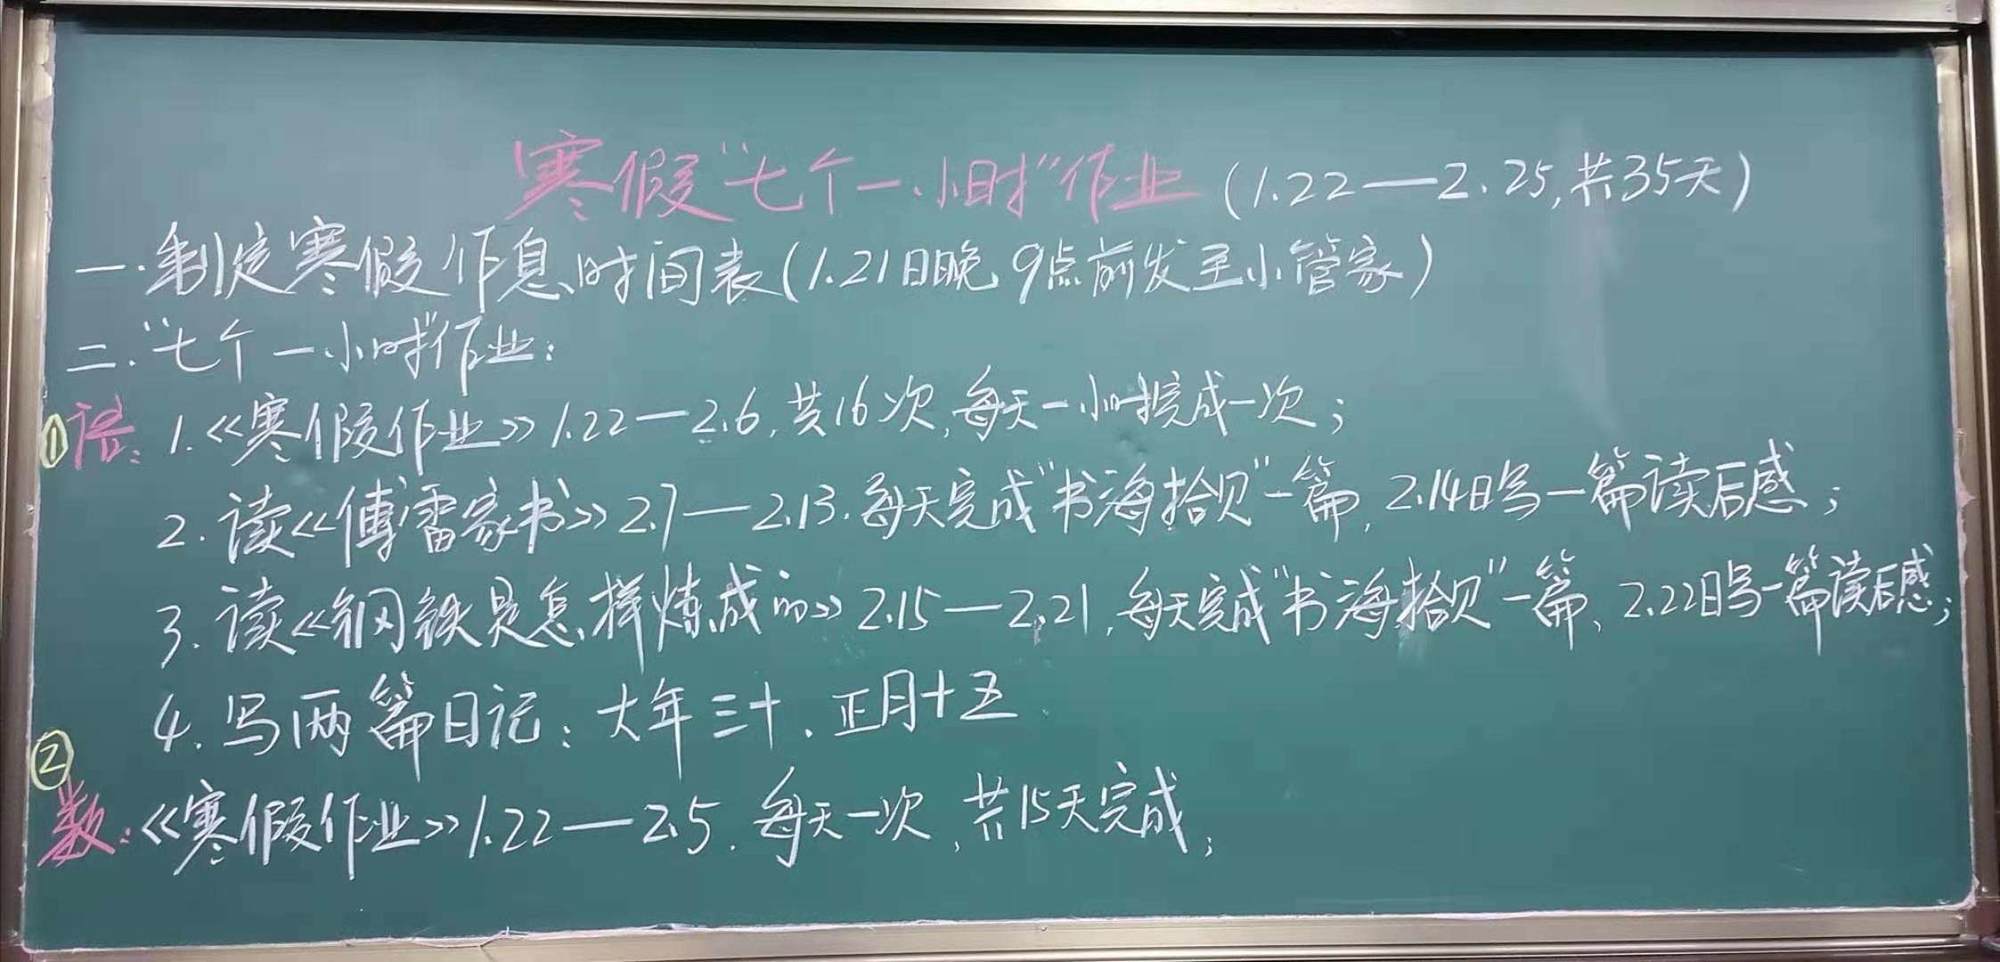 寒假“七个一小时”作业(1.22—2.25,共35天)
一.制定寒假作息时间表(1.21日晚9点前发至小管家)
二.“七个一小时”作业:
①语:1.《寒假作业》1.22—2.6,共16次,每天一小时完成一次;
2.读《傅雷家书》2.7—2.13.每天完成“书海拾贝”一篇,2.14日写一篇读后感;
3.读《钢铁是怎样炼成的》2.15—2.21,每天完成“书海拾贝”一篇、2.22日写一篇读后感;
4.写两篇日记:大年三十、正月十五
②
数:《寒假作业》1.22—2.5.每天一次,共15天完成;